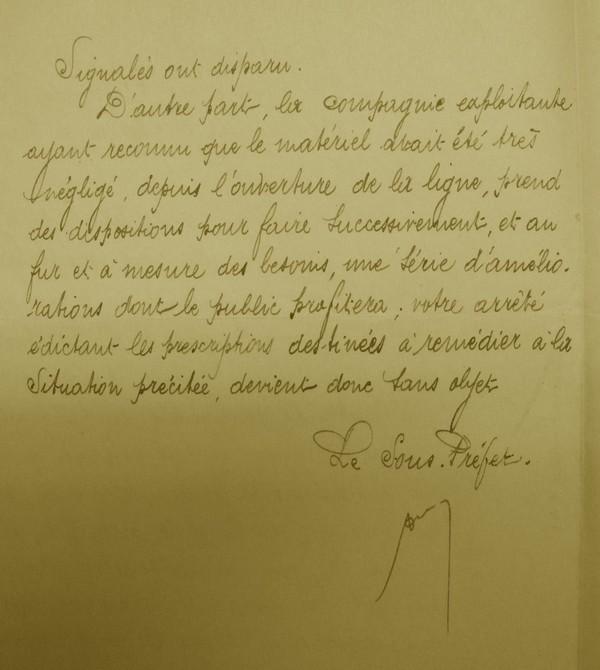 Signalés ont disparu.
D'autre part, la compagnie exploitante
ayant reconnu que le matériel avait été très
négligé, depuis l'ouverture de la ligne, prend
des dispositions pour faire successivement, et au
fur et à mesure des besoins, une série d'amélio-
rations dont le public profitera; votre arrêté
édictant les prescriptions destinées à remédier à la
situation précitée, devient donc sans objet
Le Sous-Préfet.